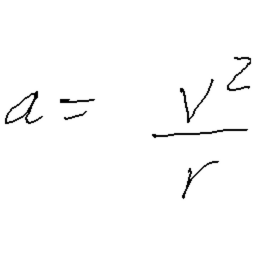 a = v²/r